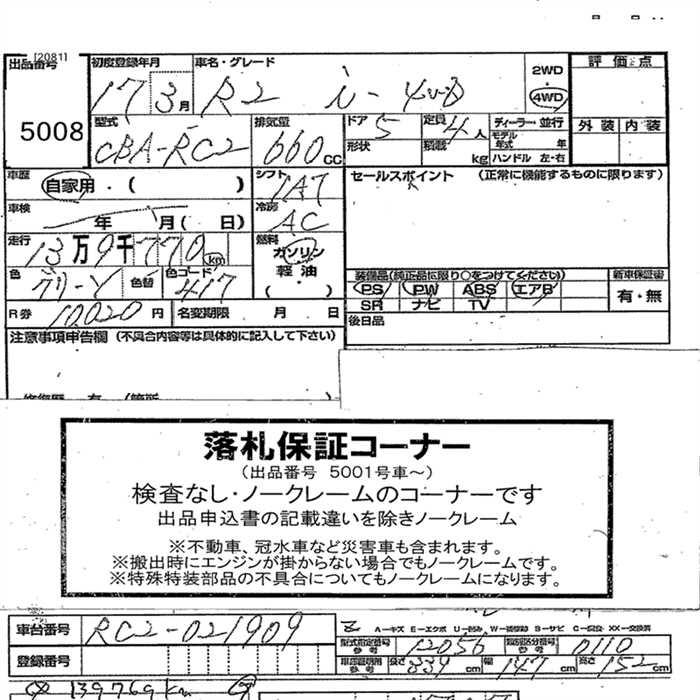 [2081]
出品番号
5008
初度登録年月
17 3月
車名・グレード
R2 i-4WD
2WD
4WD
評価点
外装 内装
型式
CBA-RC2
排気量
660cc
ドア 5
形状
定員 4人
積載 kg
ディーラー・並行
モデル年式 年
ハンドル 左・右
車歴
自家用・( )
シフト
IA7
セールスポイント (正常に機能するものに限ります)
車検
年 月( 日)
冷房
AC
走行
13万9千770km
燃料
ガソリン
軽油
( )
色
グリーン
色替
色コード
417
装備品(純正品に限り○をつけてください)
新車保証書
PS PW ABS エアB
SR ナビ TV
有・無
R券 10020円
名変期限 月 日
後日品
注意事項申告欄 (不具合内容等は具体的に記入して下さい)
落札保証コーナー
(出品番号 5001号車～)
検査なし・ノークレームのコーナーです
出品申込書の記載違いを除きノークレーム
※不動車、冠水車など災害車も含まれます。
※搬出時にエンジンが掛からない場合でもノークレームです。
※特殊特装部品の不具合についてもノークレームになります。
車台番号 RC2-021909
登録番号
A-キズ E-エクボ U-凹み W-補修跡 S-サビ C-腐食 XX-交換済
型式指定番号 参考 12056
類別区分番号 参考 0110
車庫証明用 参考 長さ 339cm 幅 147cm 高さ 152cm
139769km